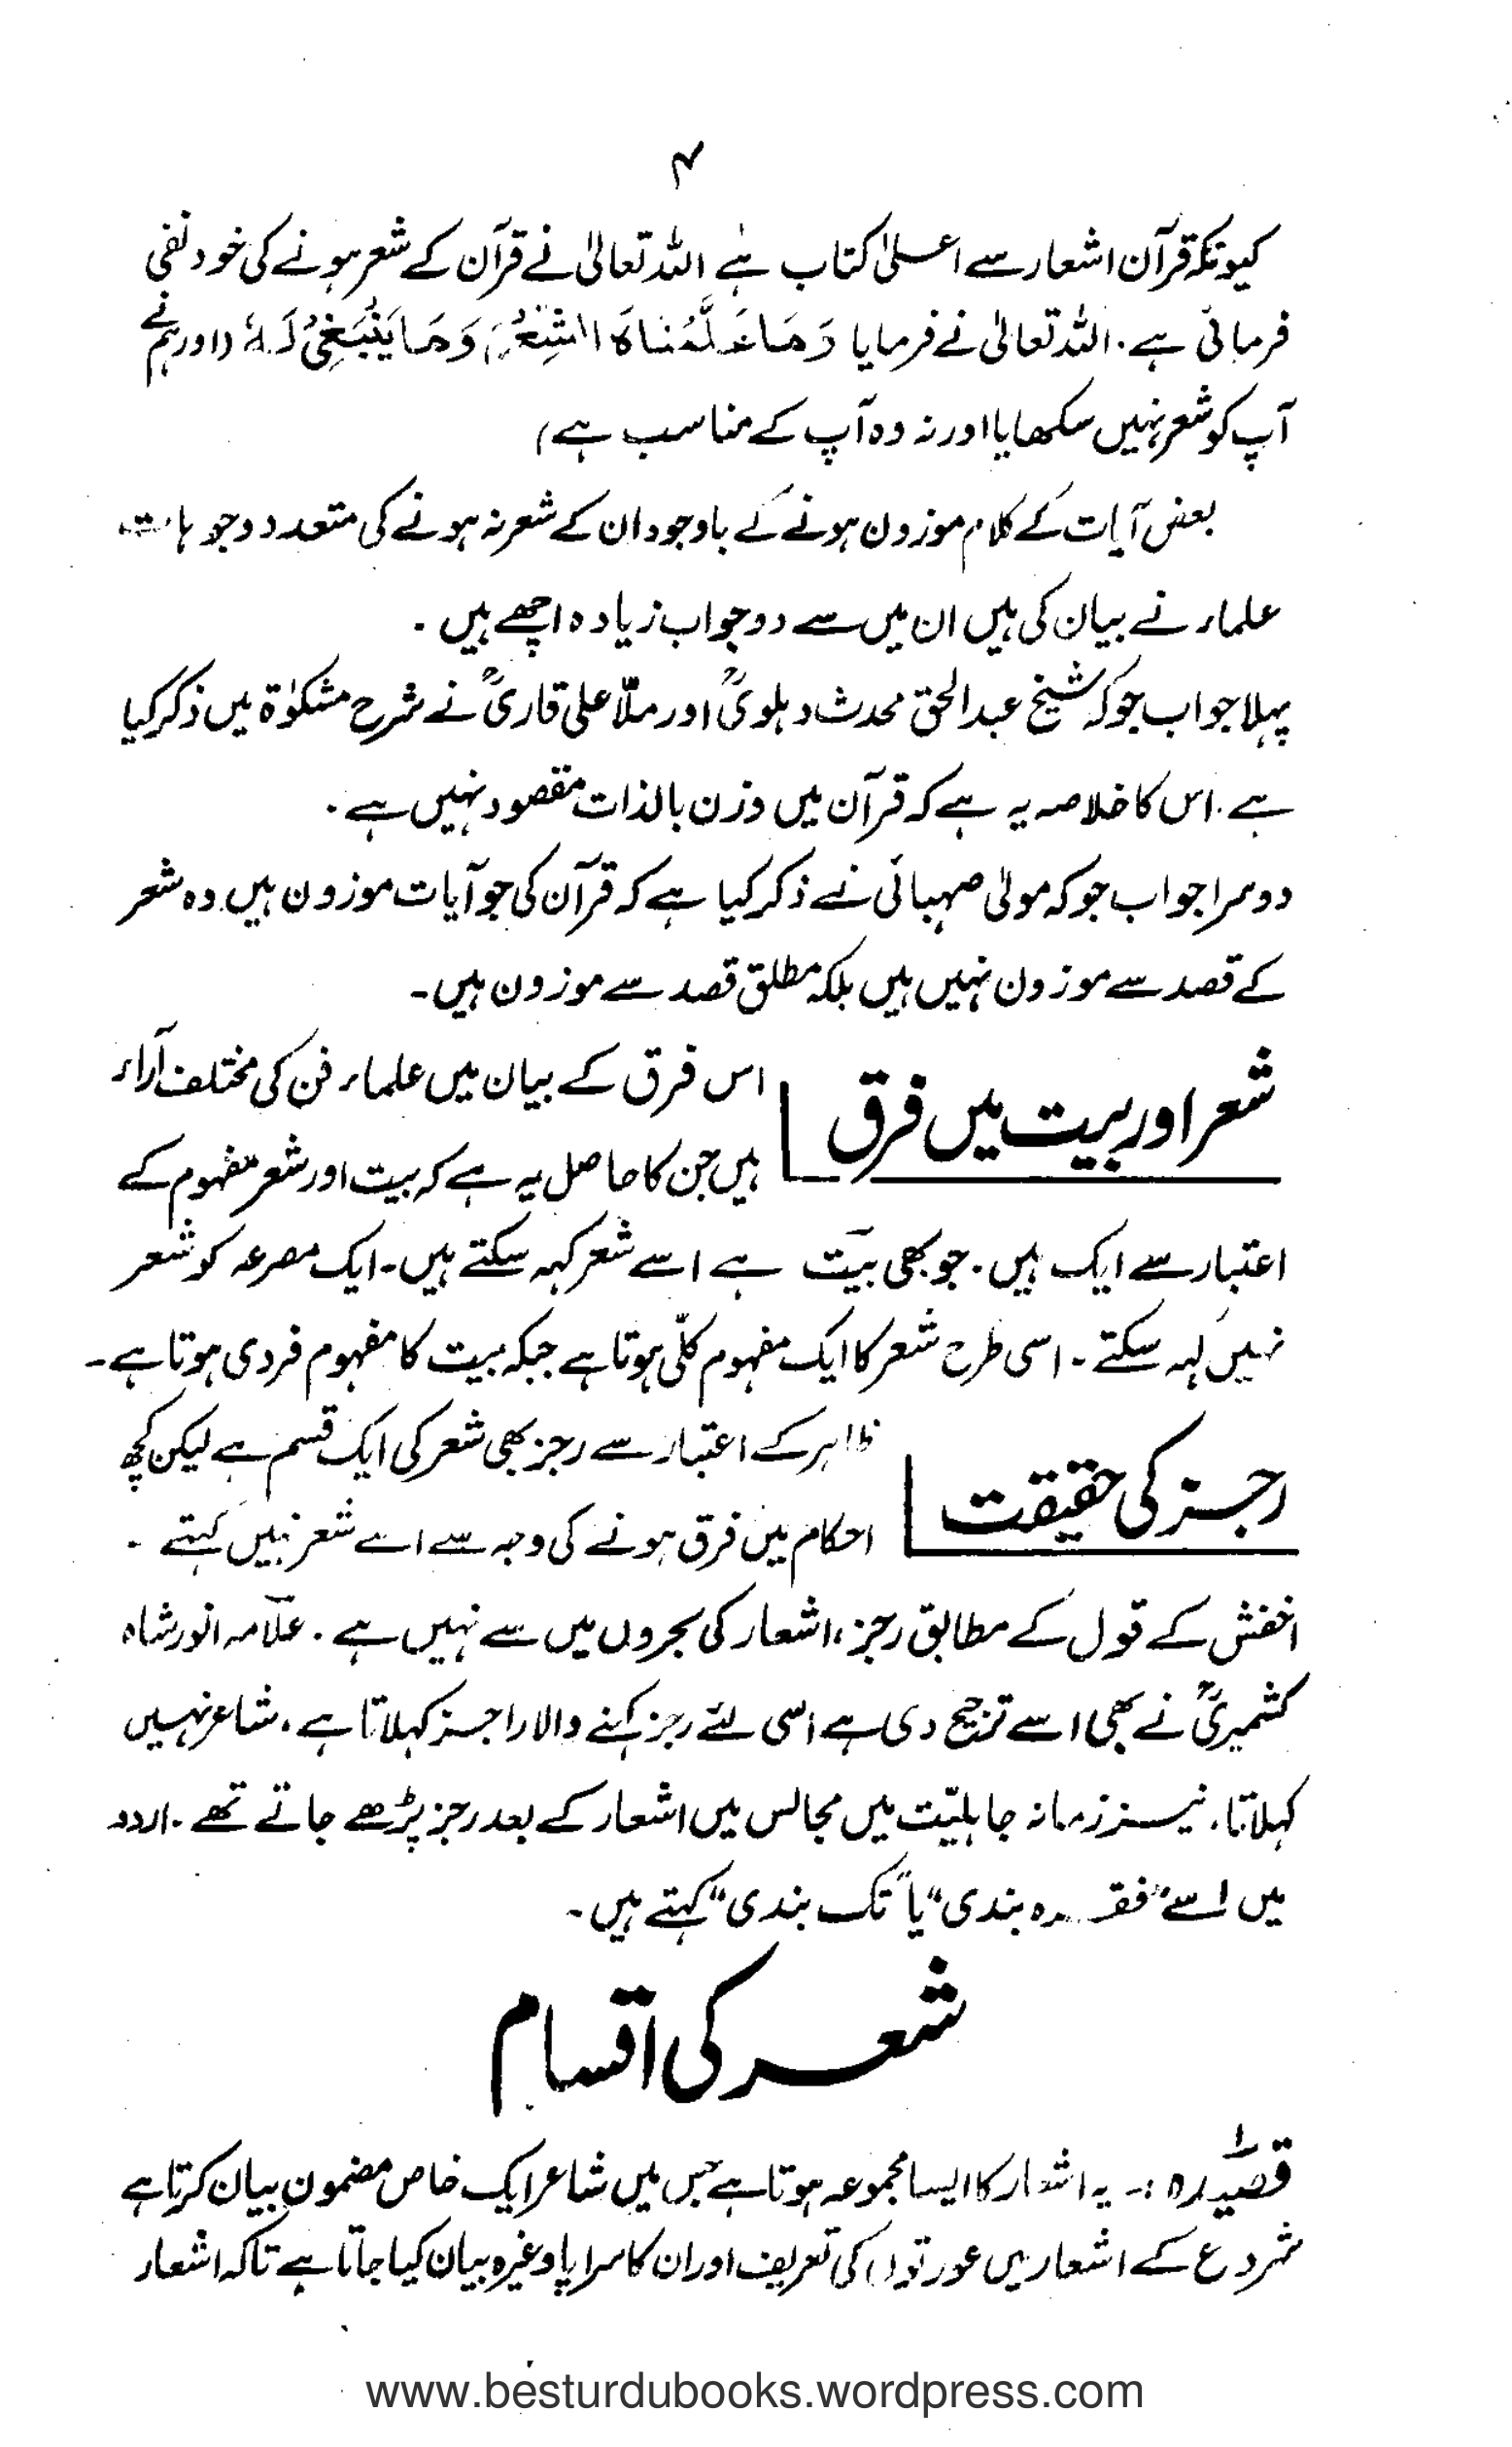 ۴
کیونکہ قرآن اشعار سے اعلیٰ کتاب ہے اللہ تعالیٰ نے قرآن کے شعر ہونے کی خود نفی
فرمائی ہے۔ اللہ تعالیٰ نے فرمایا وَمَا عَلَّمْنَاهُ الشِّعْرَ وَمَا يَنْبَغِىْ لَهٗ (اور ہم نے
آپ کو شعر نہیں سکھایا اور نہ وہ آپ کے مناسب ہے)
بعض آیات کے کلام موزون ہونے کے باوجود ان کے شعر نہ ہونے کی متعدد وجوہات
علماء نے بیان کی ہیں ان میں سے دو جواب زیادہ اچھے ہیں ۔
پہلا جواب جو کہ شیخ عبدالحق محدث دہلویؒ اور ملّا علی قاریؒ نے شرح مشکوٰۃ میں ذکر کیا
ہے۔ اس کا خلاصہ یہ ہے کہ قرآن میں وزن بالذات مقصود نہیں ہے ۔
دوسرا جواب جو کہ مولیٰ صہبائی نے ذکر کیا ہے کہ قرآن کی جو آیات موزون ہیں وہ شعر
کے قصد سے موزون نہیں ہیں بلکہ مطلق قصد سے موزون ہیں۔
شعر اور بیت میں فرق
اس فرق کے بیان میں علماء فن کی مختلف آراء
ہیں جن کا حاصل یہ ہے کہ بیت اور شعر مفہوم کے
اعتبار سے ایک ہیں۔ جو بھی بیت ہے اسے شعر کہہ سکتے ہیں۔ ایک مصرعہ کو شعر
نہیں کہہ سکتے ۔ اسی طرح شعر کا ایک مفہوم کلّی ہوتا ہے جبکہ بیت کا مفہوم فردی ہوتا ہے۔
رجز کی حقیقت
ظاہر کے اعتبار سے رجز بھی شعر کی ایک قسم ہے لیکن کچھ
احکام میں فرق ہونے کی وجہ سے اسے شعر نہیں کہتے ۔
اخفش کے قول کے مطابق رجز، اشعار کی بحروں میں سے نہیں ہے ۔ علّامہ انور شاہ
کشمیریؒ نے بھی اسے ترجیح دی ہے اسی لئے رجز کہنے والا راجز کہلاتا ہے ، شاعر نہیں
کہلاتا، نیز زمانہ جاہلیّت میں مجالس میں اشعار کے بعد رجز پڑھے جاتے تھے ۔ اردو
میں اسے "فقرہ بندی" یا "تک بندی" کہتے ہیں۔
شعر کی اقسام
قصیدہ :۔ یہ اشعار کا ایسا مجموعہ ہوتا ہے جس میں شاعر ایک خاص مضمون بیان کرتا ہے
شروع کے اشعار میں عورتوں کی تعریف اور ان کا سراپا وغیرہ بیان کیا جاتا ہے تاکہ اشعار
www.besturdubooks.wordpress.com